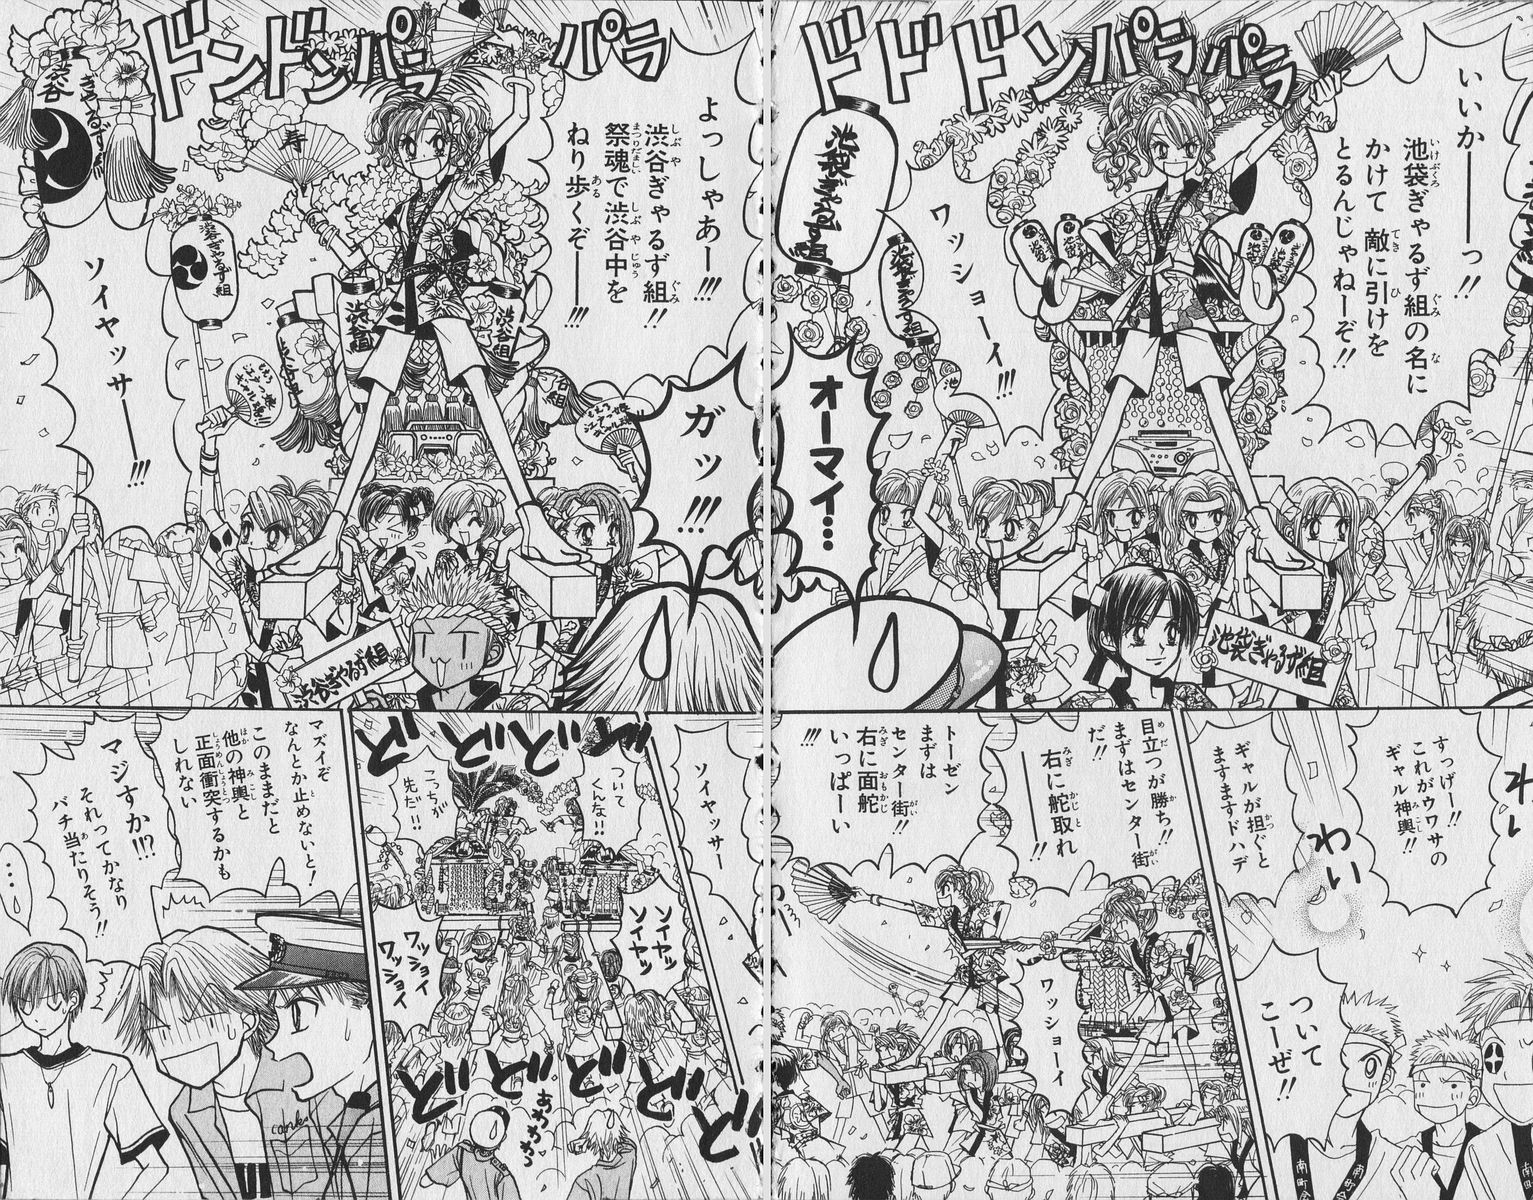 ドドドンパラパラ
いいかーーっ!!
池袋ぎゃるず組の名に
かけて敵に引けを
とるんじゃねーぞ!!
ワッショーイ!!!
池袋ぎゃるず組
池袋ぎゃるず組
池袋
池袋ぎゃるず組
オーマイ…
わい
すっげー!!
これがウワサの
ギャル神輿!!
ギャルが担ぐと
ますますドハデ
ついて
こーぜ!!
目立つが勝ち!!
まずはセンター街
だ!!
右に舵取れ
トーゼン
まずは
センター街!!
右に面舵
いっぱーい
!!!
ワッショーイ
ドンドンパラパラ
よっしゃあー!!!
渋谷ぎゃるず組!!
祭魂で渋谷中を
ねり歩くぞーー!!!
ソイヤッサーー!!!
ガッ!!!
渋谷
ぎゃるず組
寿
渋谷ぎゃるず組
渋谷組
渋谷組
渋谷ぎゃるず組
ソイヤッサー
ズズズズズ
ついて
くんな!!
こっちが
先だ!!
ソイヤッ
ソイヤッ
ワッショイ
ワッショイ
ズズズズズズ
あわわわっ
マズイぞ
なんとか止めないと!
このままだと
他の神輿と
正面衝突するかも
しれない
マジすか!!?
それってかなり
バチ当たりそう!!
…